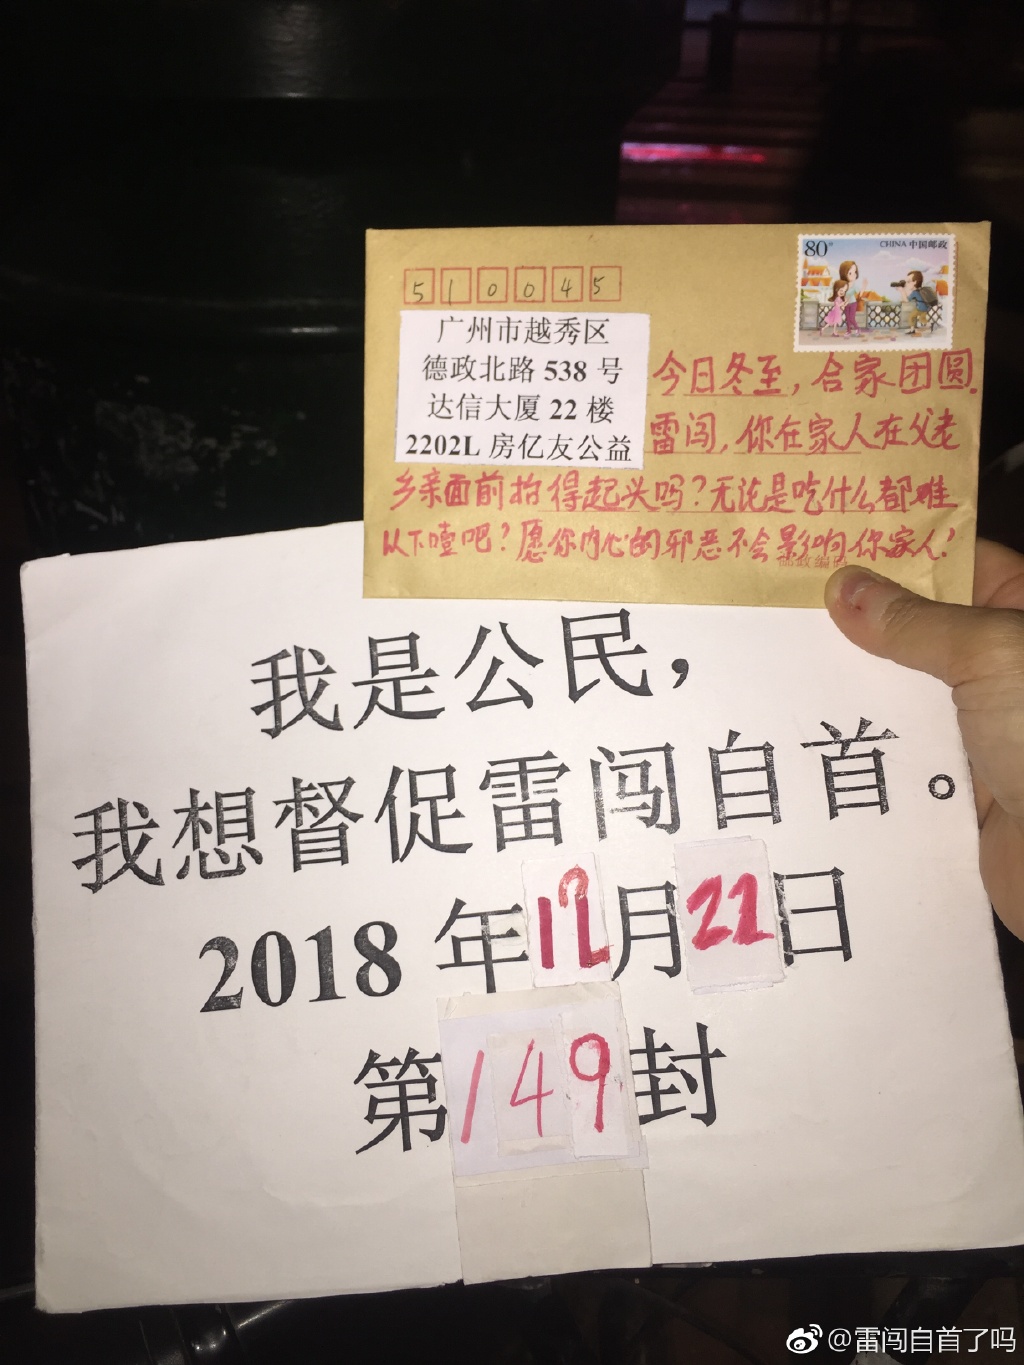 80分
CHINA 中国邮政
510045
广州市越秀区
德政北路 538 号
达信大厦 22 楼
2202L 房亿友公益
今日冬至，合家团圆.
雷闯，你在家人在父老
乡亲面前抬得起头吗？无论是吃什么都难
以下噎吧？愿你内心的邪恶不会影响你家人！
邮政编码
我是公民，
我想督促雷闯自首。
2018 年12月22日
第149封
@雷闯自首了吗